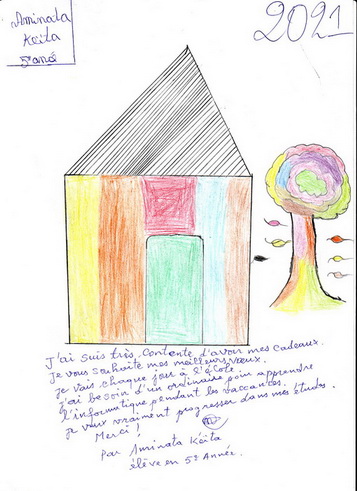 Aminata
Keita
5e ané
2021
J'ai suis très contente d'avoir mes cadeaux.
Je vous souhaite mes meilleurs vœux.
Je vais chaque jour à l'école.
J'ai besoin d'un ordinaire pour apprendre
l'informatique pendant les vaccances.
Je veux vraiment progresser dans mes études.
Merci !
Par Aminata Kéita
élève en 5e Année.